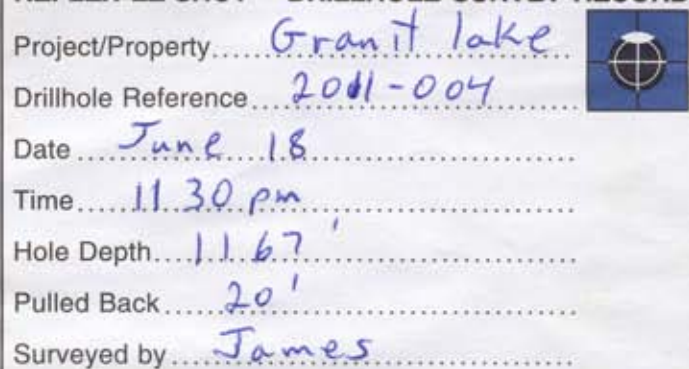 Project/Property Granit lake
Drillhole Reference 2011-004
Date June 18
Time 11 30 pm
Hole Depth 1167'
Pulled Back 20'
Surveyed by James